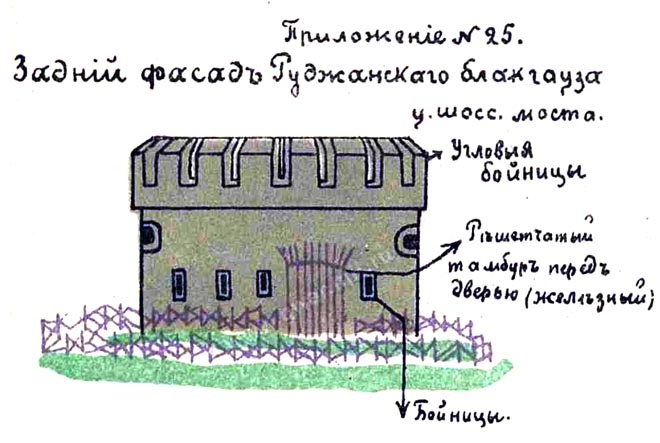 Приложеніе № 25.
Задній фасадъ Гуджанскаго блакгауза
у шосс. моста.
Угловыя
бойницы
Рѣшетчатый
тамбуръ передъ
дверью (желѣзный)
Бойницы.